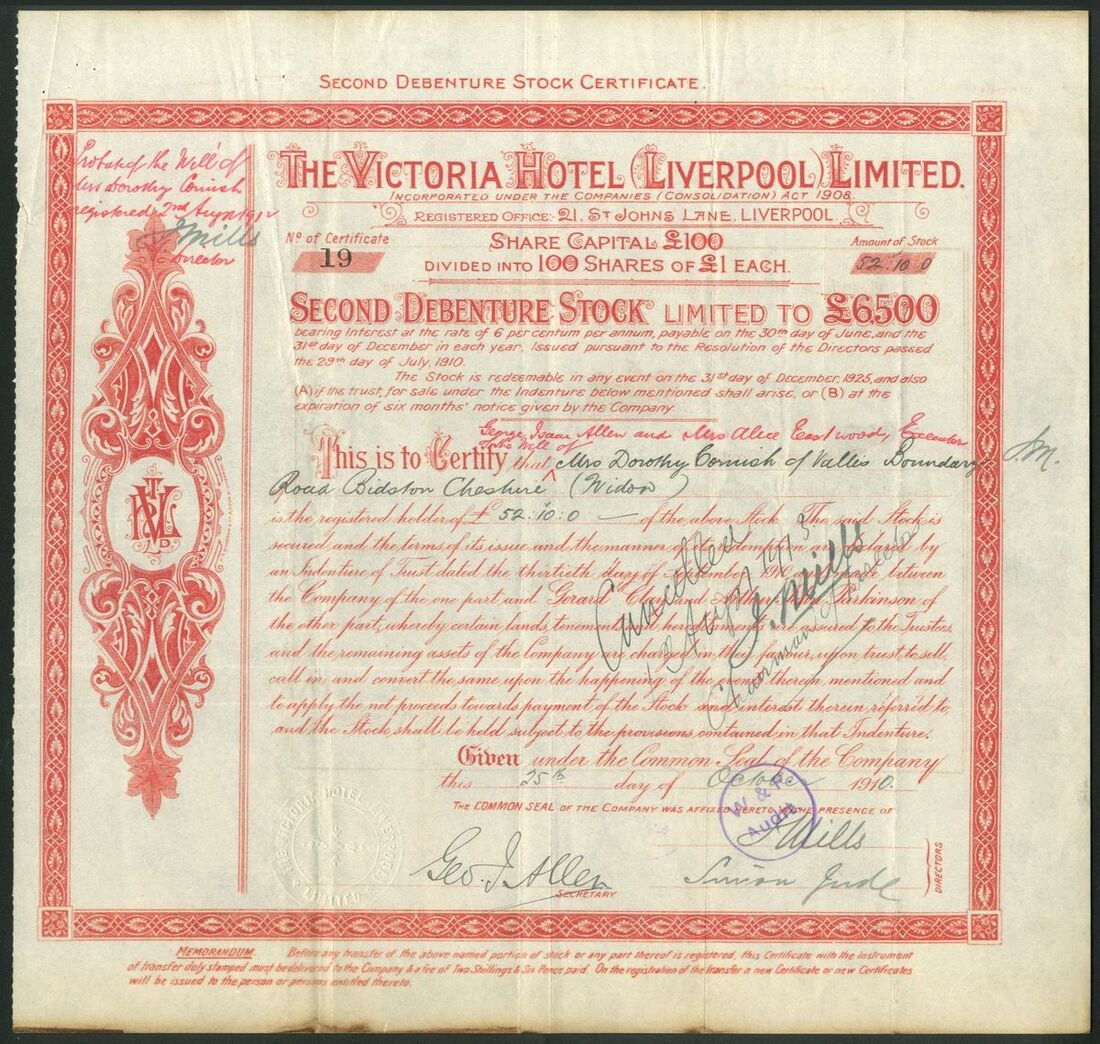 SECOND DEBENTURE STOCK CERTIFICATE.
Probate of the Will of
Mrs Dorothy Cornish
registered 2nd Augst 1912
J Mills
Director
THE VICTORIA HOTEL (LIVERPOOL) LIMITED.
INCORPORATED UNDER THE COMPANIES (CONSOLIDATION) ACT 1908.
REGISTERED OFFICE:- 21, ST JOHNS LANE, LIVERPOOL.
No of Certificate
19
SHARE CAPITAL £100
DIVIDED INTO 100 SHARES OF £1 EACH.
Amount of Stock
52.10.0
SECOND DEBENTURE STOCK LIMITED TO £6500
bearing Interest at the rate of 6 per centum per annum, payable on the 30th day of June, and the
31st day of December in each year. Issued pursuant to the Resolution of the Directors passed
the 29th day of July, 1910.
The Stock is redeemable in any event on the 31st day of December, 1925, and also
(A) if the trust, for sale under the Indenture below mentioned shall arise, or (B) at the
expiration of six months' notice given by the Company.
George Isaac Allen and Mrs Alice Eastwood, Executor
of the Will of
This is to Certify that Mrs Dorothy Cornish of Vallis Boundary
J.M.
Road Bidston Cheshire (Widow)
is the registered holder of £ 52:10:0 — of the above Stock. The said Stock is
secured, and the terms of its issue and the manner of its redemption are declared by
an Indenture of Trust dated the thirtieth day of September 1910 and made between
the Company of the one part, and Gerard Clay and Parkinson of
the other part, whereby certain lands, tenements and hereditaments are assured to the Trustees,
and the remaining assets of the Company are charged in their favour, upon trust, to sell,
call in, and convert the same upon the happening of the events therein mentioned and
to apply the net proceeds towards payment of the Stock and interest therein referred to,
and the Stock shall be held subject to the provisions contained in that Indenture.
Cancelled
Augst 1913
J. Mills
Chairman of Directors
Given under the Common Seal of the Company
this 25th day of October 1910.
THE COMMON SEAL OF THE COMPANY WAS AFFIXED HERETO IN THE PRESENCE OF
W & P
Audit
J Mills
Geo. J. Allen
SECRETARY
Simon Jude
DIRECTORS
VICTORIA HOTEL
LIMITED
MEMORANDUM. Before any transfer of the above named portion of stock or any part thereof is registered, this Certificate with the instrument
of transfer duly stamped must be delivered to the Company & a fee of Two Shillings & Six Pence paid. On the registration of the transfer a new Certificate or new Certificates
will be issued to the person or persons entitled thereto.